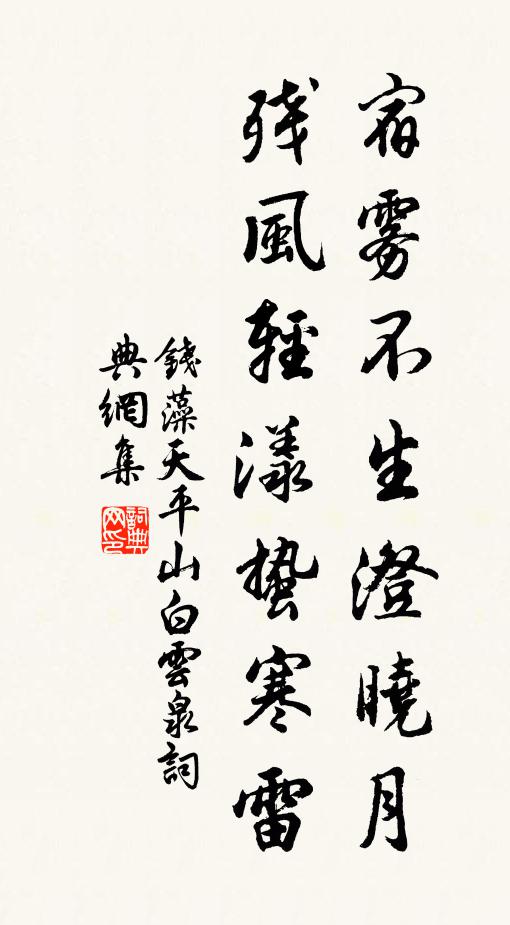 宿雾不生澄曉月
残風輕漾蟄寒雷
錢藻天平山白雲泉詞
典網集
詞典网印